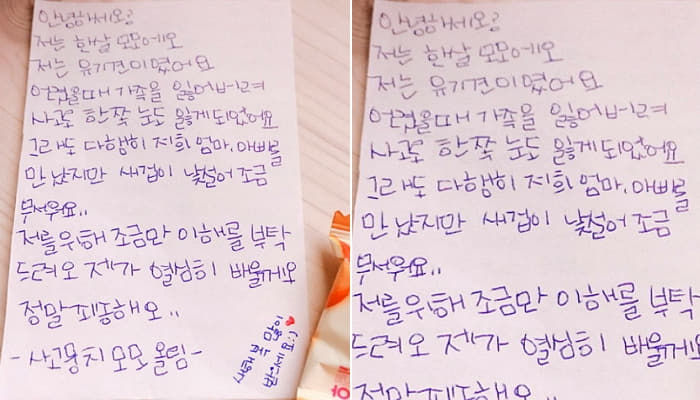 안녕하세요?
저는 한살 모모에오
저는 유기견이였어요
어렸을때 가족을 잃어버려
사고로 한쪽 눈도 잃게되었어요
그래도 다행히 저희 엄마, 아빠를
만났지만 새집이 낯설어 조금
무서우요..
저를위해 조금만 이해를 부탁
드려오 제가 열심히 배울게요
정말 죄송해오..
-사고뭉치 모모 올림-
안녕하세요?
저는 한살 모모에오
저는 유기견이였어요
어렸을때 가족을 잃어버려
사고로 한쪽 눈도 잃게되었어요
그래도 다행히 저희 엄마, 아빠를
만났지만 새집이 낯설어 조금
무서우요..
저를위해 조금만 이해를 부탁
드려오 제가 열심히 배울게요
정말 죄송해오..